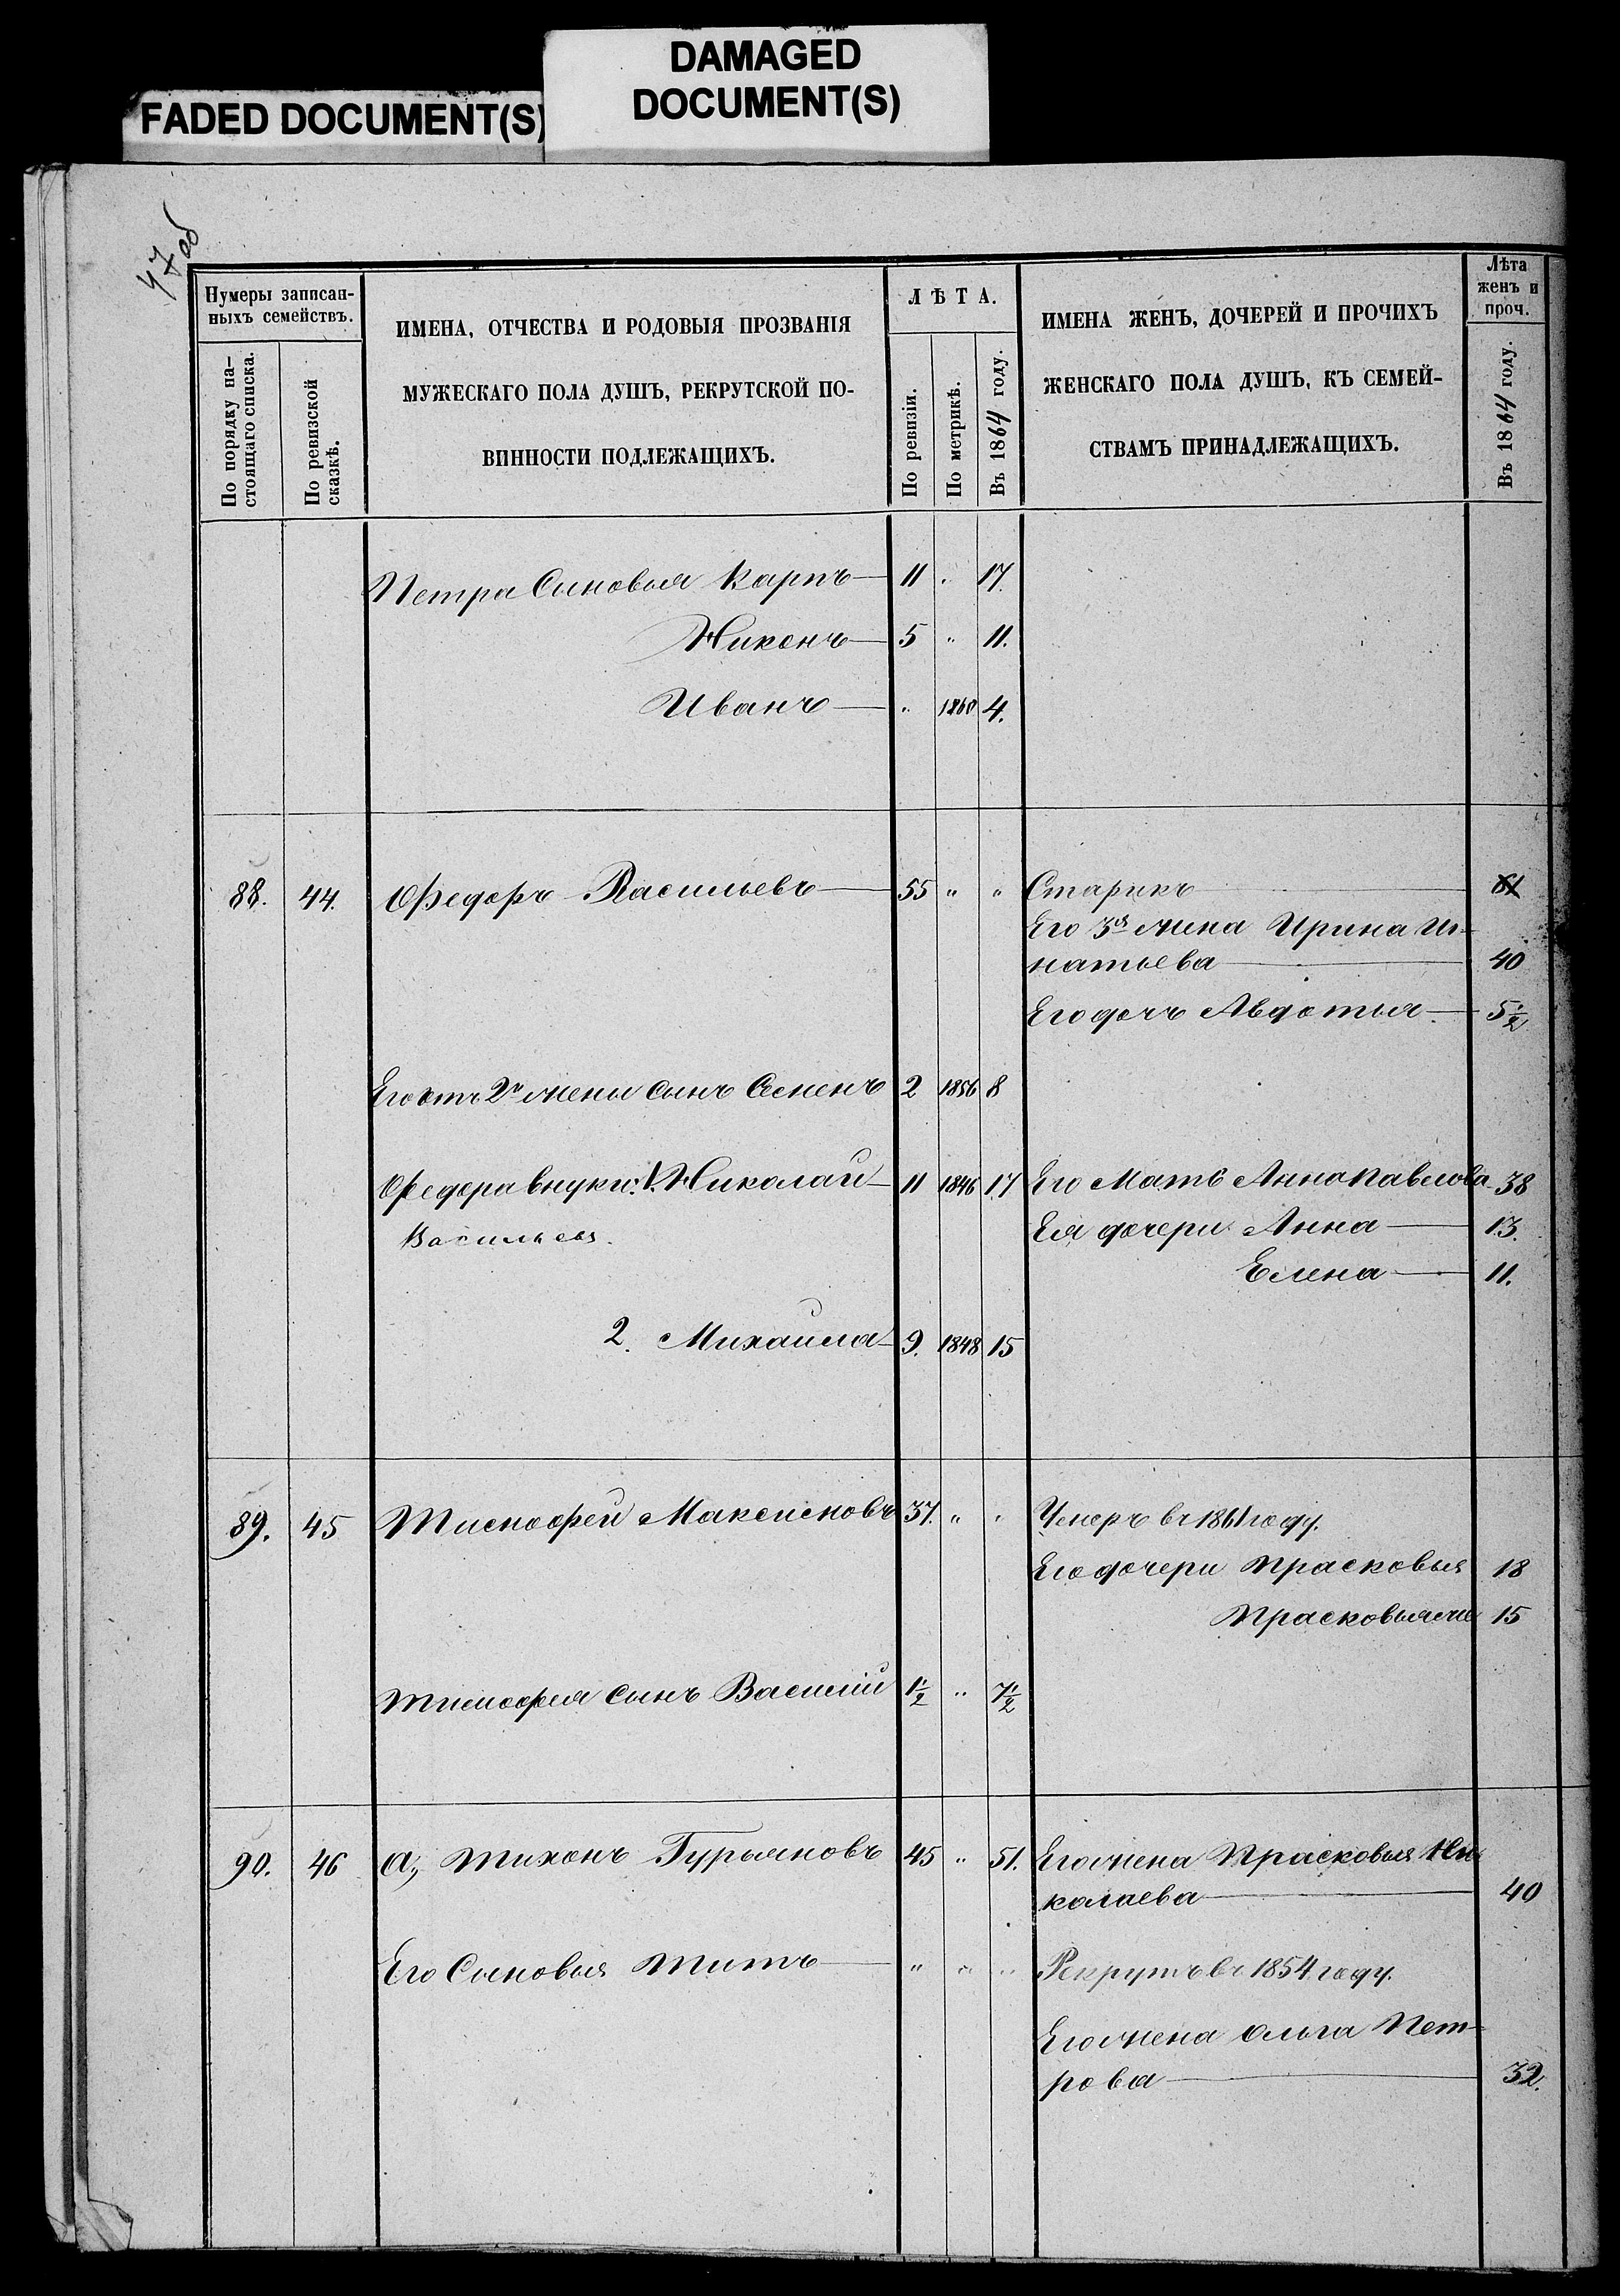 DAMAGED
DOCUMENT(S)
FADED DOCUMENT(S)
47об
Нумеры записан-
ныхъ семействъ.
По порядку на-
стоящаго списка.
По ревизской
сказкѣ.
ИМЕНА, ОТЧЕСТВА И РОДОВЫЯ ПРОЗВАНІЯ
МУЖЕСКАГО ПОЛА ДУШЪ, РЕКРУТСКОЙ ПО-
ВИННОСТИ ПОДЛЕЖАЩИХЪ.
ЛѢТА.
По ревизіи.
По метрикѣ.
Въ 1864 году.
ИМЕНА ЖЕНЪ, ДОЧЕРЕЙ И ПРОЧИХЪ
ЖЕНСКАГО ПОЛА ДУШЪ, КЪ СЕМЕЙ-
СТВАМЪ ПРИНАДЛЕЖАЩИХЪ.
Лѣта
женъ и
проч.
Въ 1864 году.
Петра Сыновья Карпъ — 11 „ 17.
Никонъ — 5 „ 11.
Иванъ — „ 1860 4.
88. 44. Федоръ Васильевъ — 55 „ „ Старикъ — 61
Его 3я жена Ирина Иг-
натьева — 40
Его дочь Авдотья — 5½
Его отъ 2й жены сынъ Семенъ 2 1856 8
Федора внуки: 1. Николай — 11 1846 17 Его Мать Анна Павлова 38
Васильевы. Ея дочери Анна — 13.
Елена — 11.
2. Михаила — 9. 1848 15
89. 45 Тимофей Максимовъ 37. „ „ Умеръ въ 1861 году.
Его дочери Прасковья 18
Прасковья же 15
Тимофея сынъ Василій 1½ „ 7½
90. 46 а, Тихонъ Гурьяновъ 45 „ 51. Его жена Прасковья Ни-
колаева — 40
Его Сыновья Титъ — „ „ „ Рекрутъ въ 1854 году.
Его жена Ольга Пет-
рова — 32.